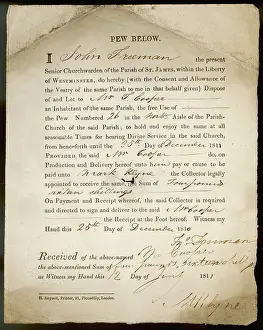 PEW BELOW.
I John Freeman the present
Senior Churchwarden of the Parish of ST. JAMES, within the Liberty
of WESTMINSTER, do hereby (with the Consent and Allowance
of the Vestry of the same Parish to me in that behalf given) Dispose
of and Let to Mr Cooper
an Inhabitant of the same Parish, the free Use of
the Pew Numbered 26 in the North Aisle of the Parish-
Church of the said Parish; to hold and enjoy the same at all
seasonable Times for hearing Divine Service in the said Church,
from henceforth until the 25th Day of December 1811
PROVIDED the said Mr Cooper do, on
Production and Delivery hereof unto pay or cause to be
paid unto Mark Rhyne the Collector legally
appointed to receive the same, the Sum of
sixteen shillings
On Payment and Receipt whereof, the said Collector is required
and directed to sign and deliver to the said Mr Cooper
the Receipt at the Foot hereof. Witness my
Hand this 25th Day of December 1810
Received of the above-named Mr Cooper
the above-mentioned Sum of
as Witness my Hand this 12 Day of 1811
H. Reynell, Printer, 21, Piccadilly, London.